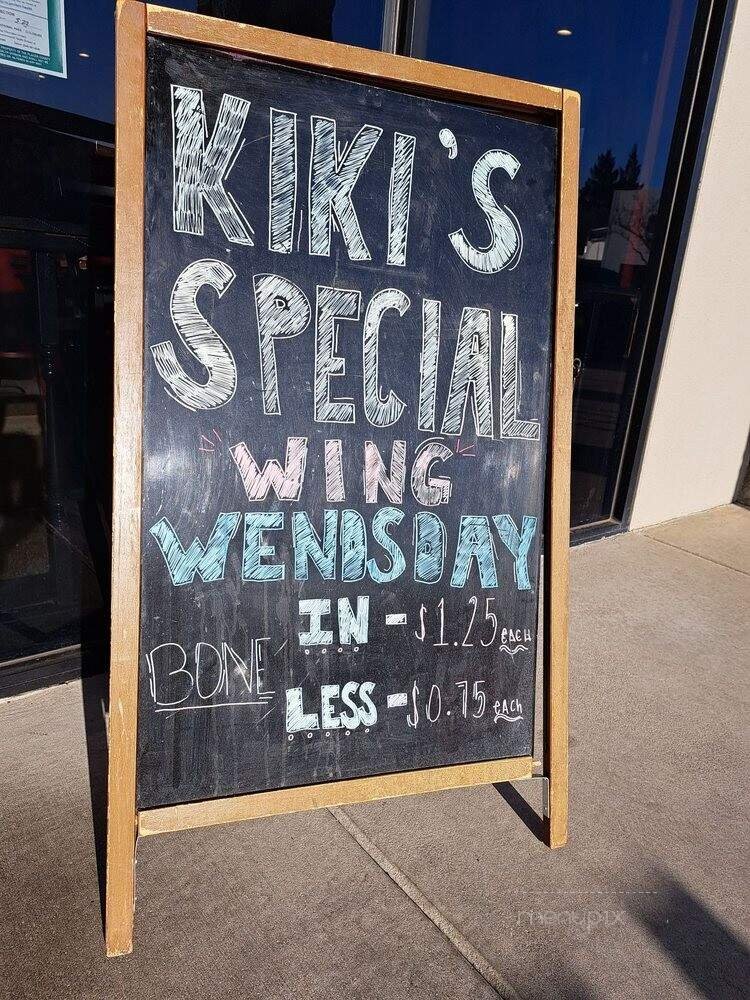 KIKI'S
SPECIAL
"WING"
WENDSDAY
BONE
IN - $1.25 EACH
LESS - $0.75 EACH
menupix